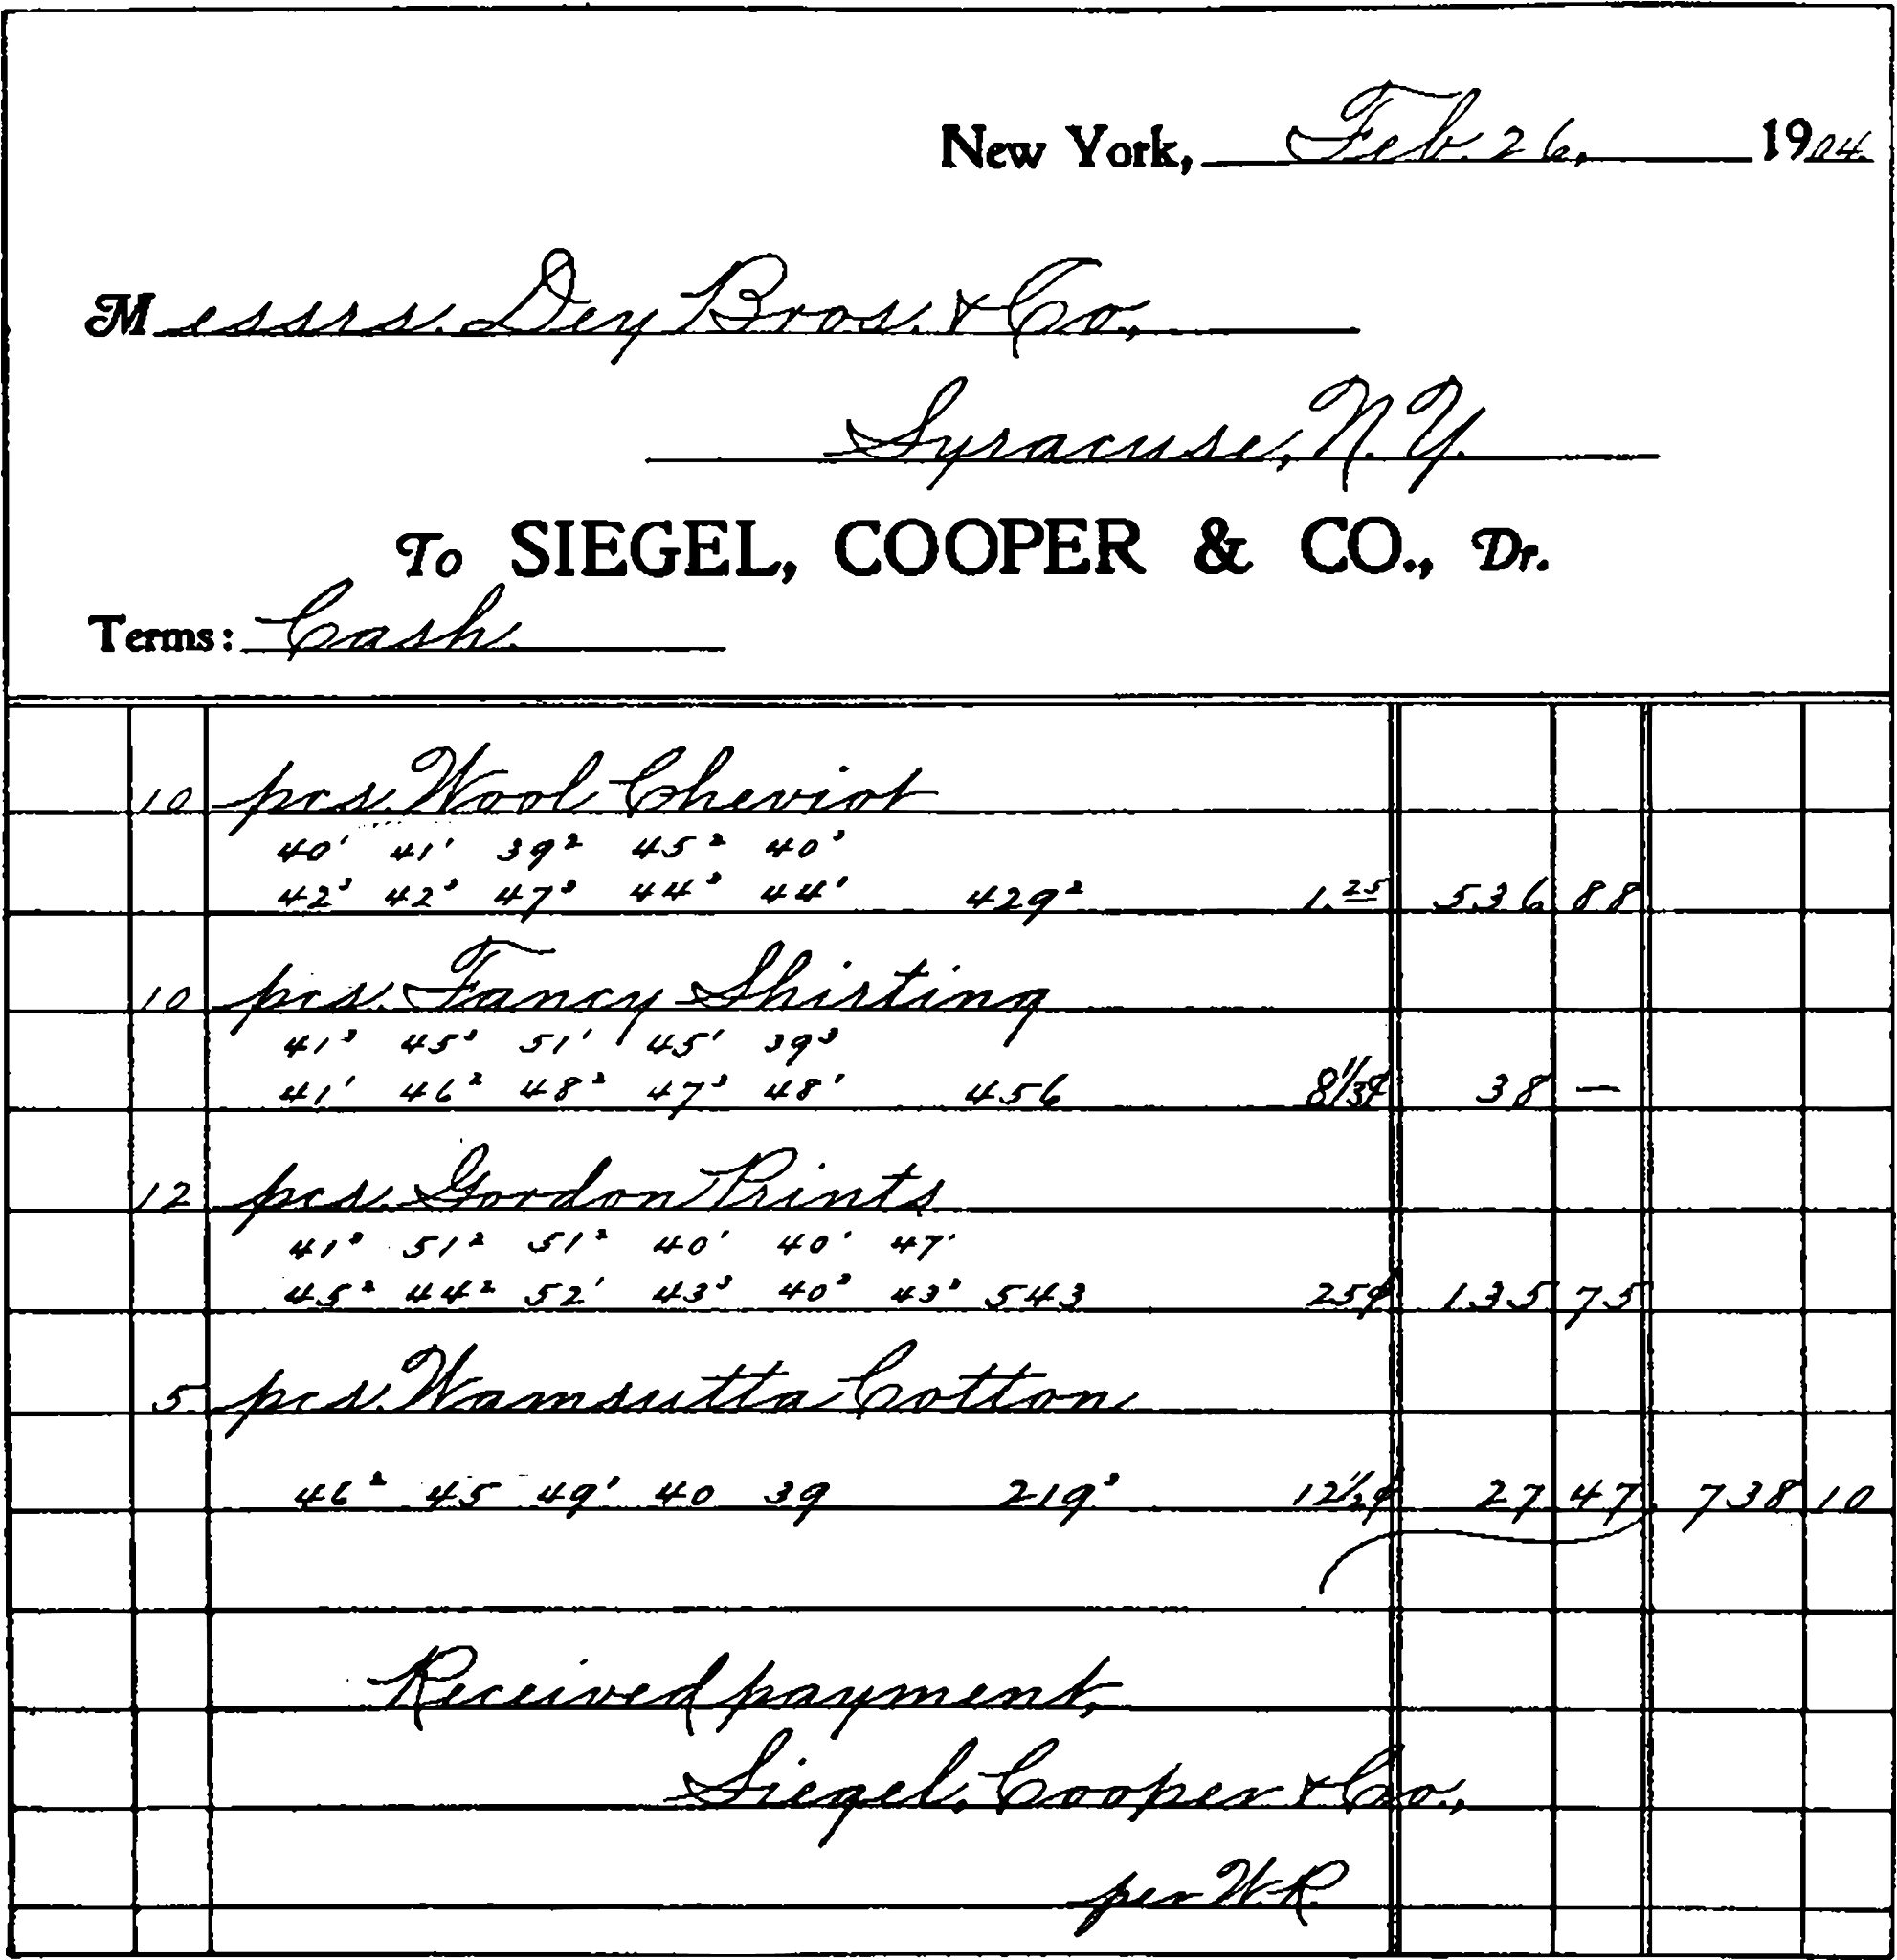 New York, Feb. 26, 1904.
Messrs. Dey Bros. & Co.,
Syracuse, N.Y.
To SIEGEL, COOPER & CO., Dr.
Terms: Cash.
10 pcs. Wool Cheviot
40¹ 41¹ 39² 45² 40³
42³ 42³ 47³ 44³ 44¹ 429² 1.25 536 88
10 pcs. Fancy Shirting
41³ 45³ 51¹ 45¹ 39³
41¹ 46² 48² 47³ 48¹ 456 8 1/3¢ 38 —
12 pcs. Gordon Prints
41³ 51² 51² 40¹ 40¹ 47¹
45² 44² 52¹ 43³ 40³ 43³ 543 25¢ 135 75
5 pcs. Wamsutta Cotton
46² 45 49¹ 40 39 219³ 12 1/2¢ 27 47 738 10
Received payment,
Siegel, Cooper & Co.,
per W.R.